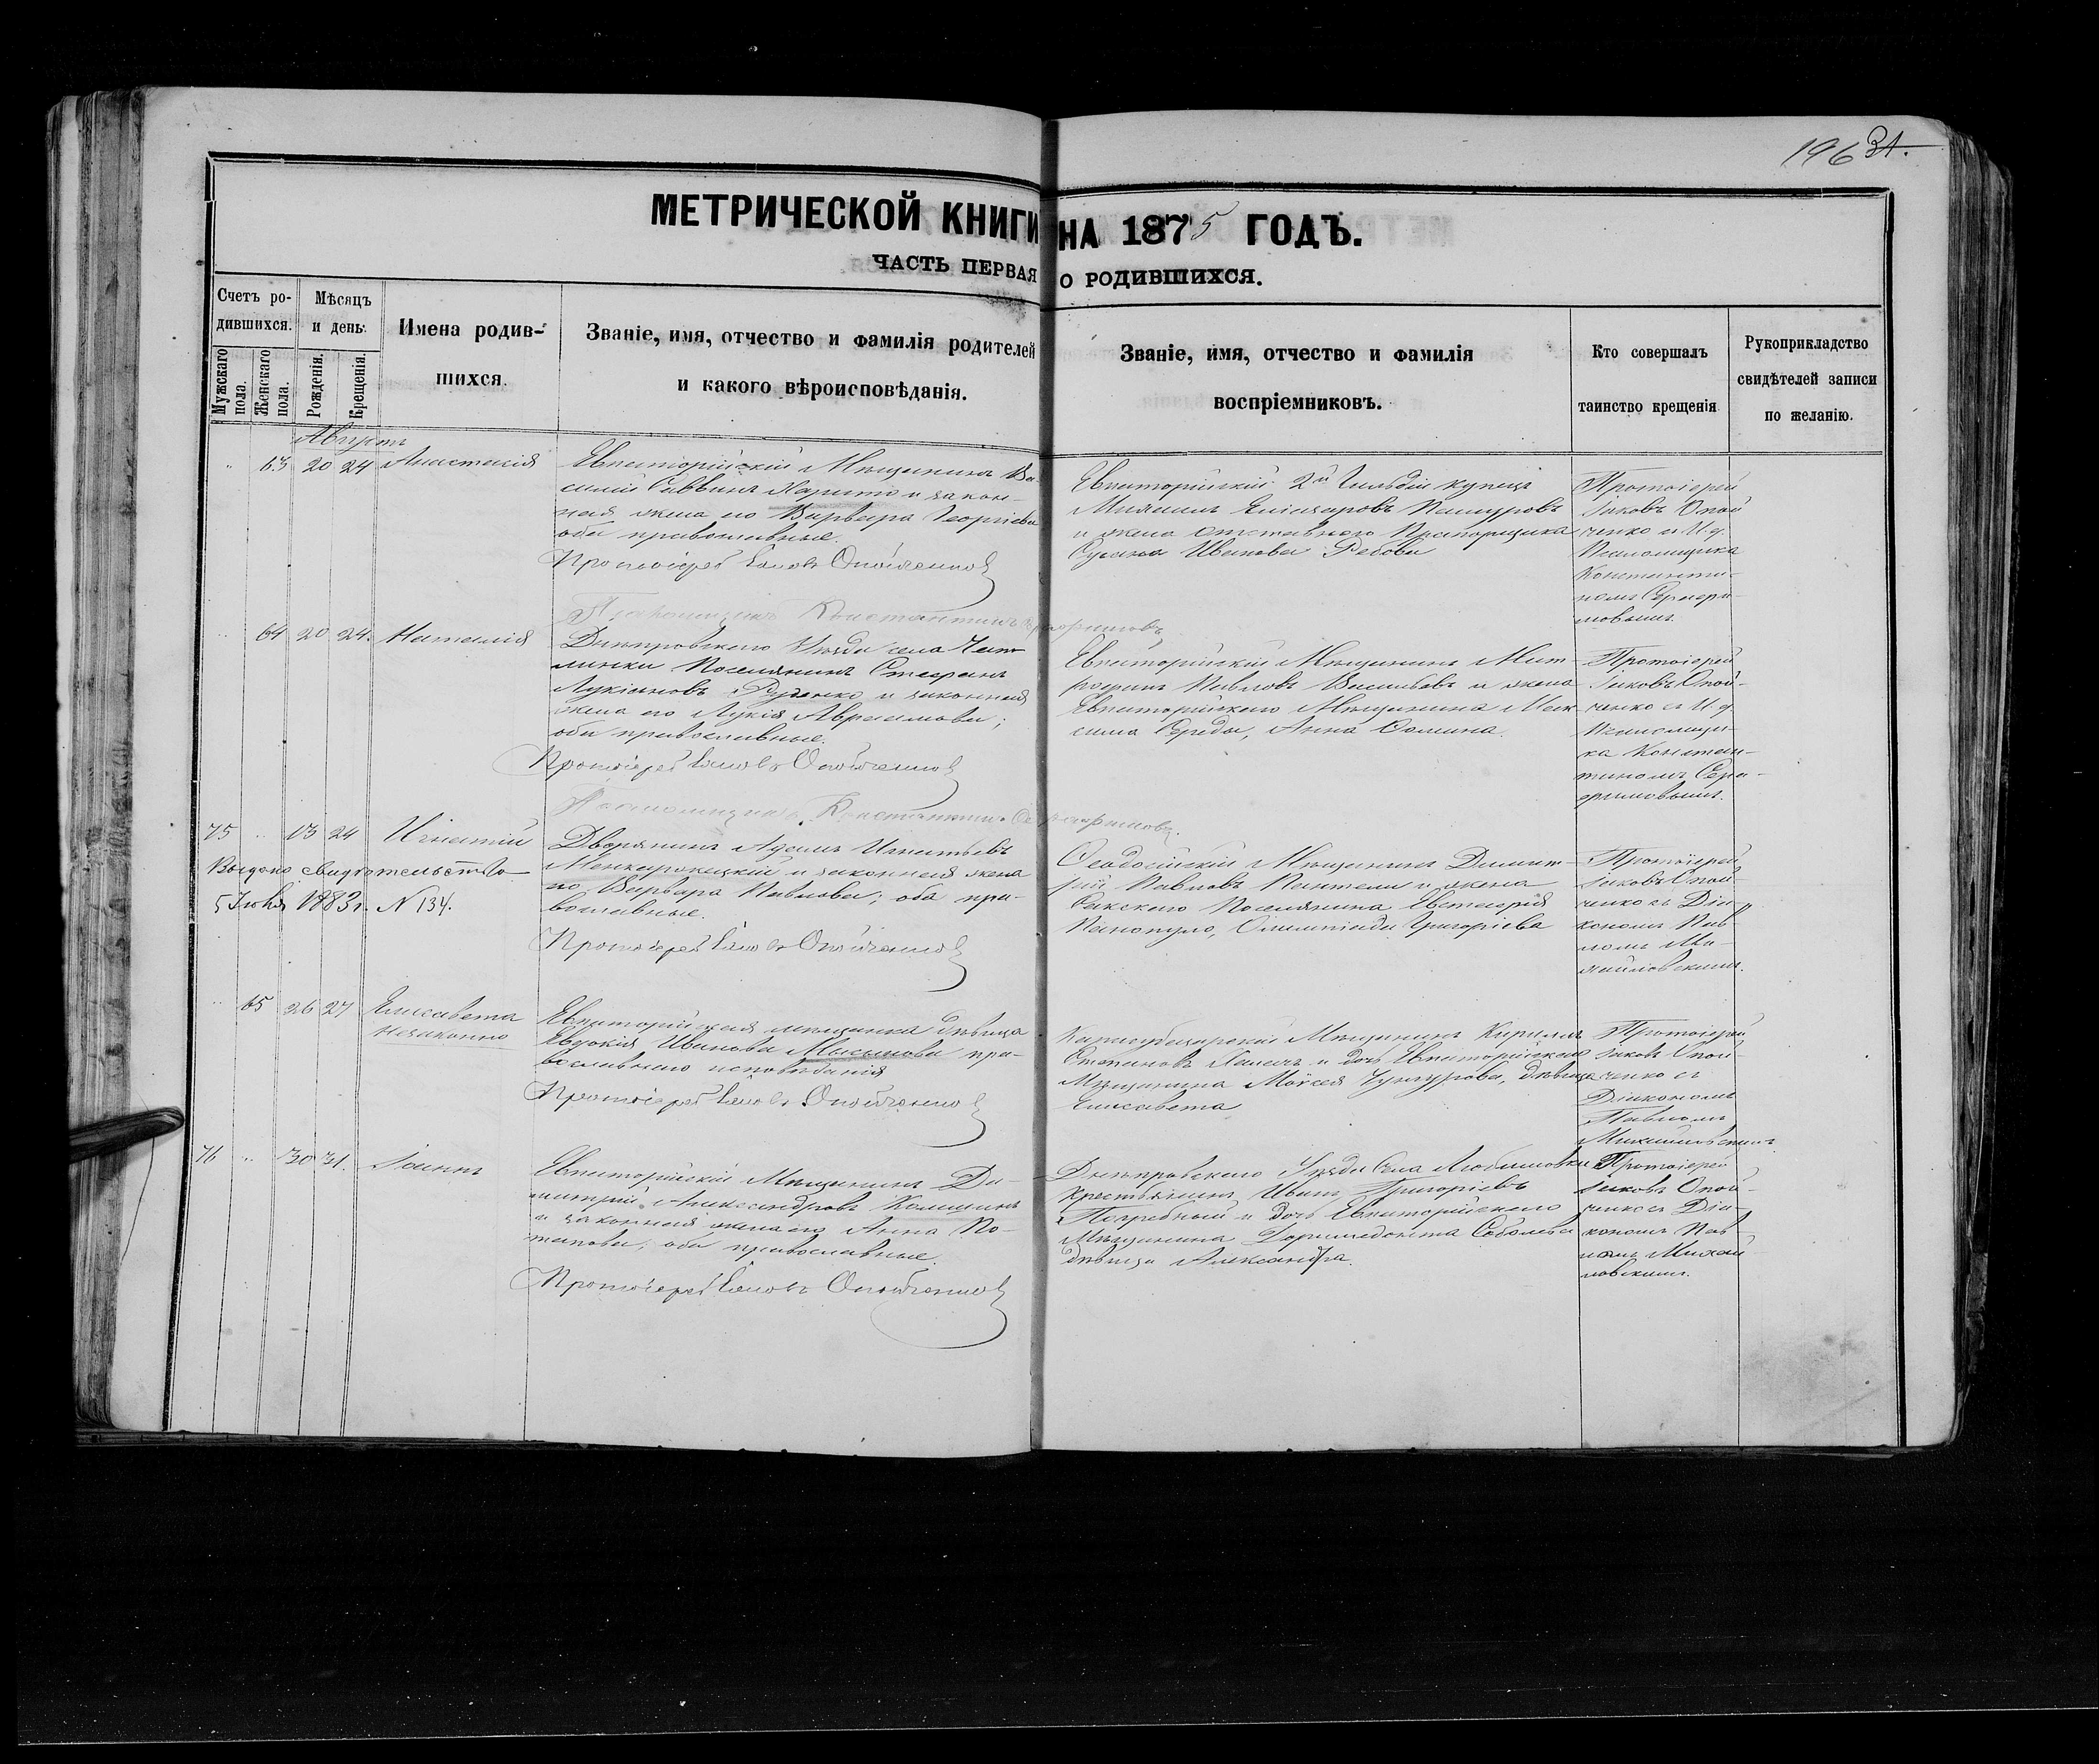 196 31.
МЕТРИЧЕСКОЙ КНИГИ НА 1875 ГОДЪ.
ЧАСТЬ ПЕРВАЯ О РОДИВШИХСЯ.
Счетъ ро-
дившихся.
Мужскаго пола.
Женскаго пола.
Мѣсяцъ
и день.
Рожденія.
Крещенія.
Имена родив-
шихся.
Званіе, имя, отчество и фамилія родителей
и какого вѣроисповѣданія.
Званіе, имя, отчество и фамилія
воспріемниковъ.
Кто совершалъ
таинство крещенія
Рукоприкладство
свидѣтелей записи
по желанію.
Августъ
63 20 24 Анастасія
Евпаторійскій Мѣщанинъ Ва-
силій Саввинъ и закон-
ная жена его Варвара Георгіева
оба православные.
Протоіерей Іаковъ Опойченко
Евпаторійскій 2й Гильдіи купецъ
и жена отставнаго Прапорщика
Ивановa
Протоіерей
Іаковъ Опой
ченко и И. д.
Псаломщика
Константи-
номъ Серафи-
мовымъ.
Псаломщикъ Константинъ Серафимовъ
64 20 24. Наталія
Днѣпровскаго Уѣзда села Чап-
линки Поселянинъ Стефанъ
Лукіановъ и законная
жена его Лукія Авраамова;
оба православные.
Протоіерей Іаковъ Опойченко
Евпаторійскій Мѣщанинъ Мит-
рофанъ Павловъ Васильевъ и жена
Евпаторійскаго Мѣщанина Мак-
сима Середы, Анна
Протоіерей
Іаковъ Опой-
ченко и И. д.
Псаломщи-
ка Констан-
тиномъ Сера-
фимовымъ.
Псаломщикъ Константинъ Серафимовъ.
75 13 24 Игнатій
Выдано свидѣтельство
5 Іюня 1883 г. N 134.
Дворянинъ Адамъ Игнатьевъ
и законная жена
его Варвара Павлова; оба пра-
вославные.
Протоіерей Іаковъ Опойченко
Ѳеодосійскій Мѣщанинъ Димит-
рій Павловъ Пантели и жена
Сакскаго Поселянина Евстафія
Панопуло, Олимпіада Григорьева
Протоіерей
Іаковъ Опой-
ченко съ Діа-
кономъ Пав-
ломъ Ми-
хайловскимъ.
65 26 27 Елисавета
незаконно
Евпаторійская мѣщанка дѣвица
Евдокія Иванова пра-
вославнаго исповѣданія
Протоіерей Іаковъ Опойченко
Карасубазарскій Мѣщанинъ Кириллъ
Степановъ и дочь Евпаторійскаго
Мѣщанина Моисея дѣвица
Елисавета
Протоіерей
Іаковъ Опой-
ченко съ
Діакономъ
Павломъ
Михайловскимъ
76 30 31. Іоаннъ
Евпаторійскій Мѣщанинъ Ди-
митрій Александровъ
и законная жена его Анна По-
тапова; оба православные.
Протоіерей Іаковъ Опойченко
Днѣпровскаго Уѣзда Села Любимовки
Крестьянинъ Иванъ Григорьевъ
Погребный и дочь Евпаторійскаго
Мѣщанина Доримедонта Соболева
дѣвица Александра.
Протоіерей
Іаковъ Опой-
ченко съ Діа-
кономъ Пав-
ломъ Михай
ловскимъ.